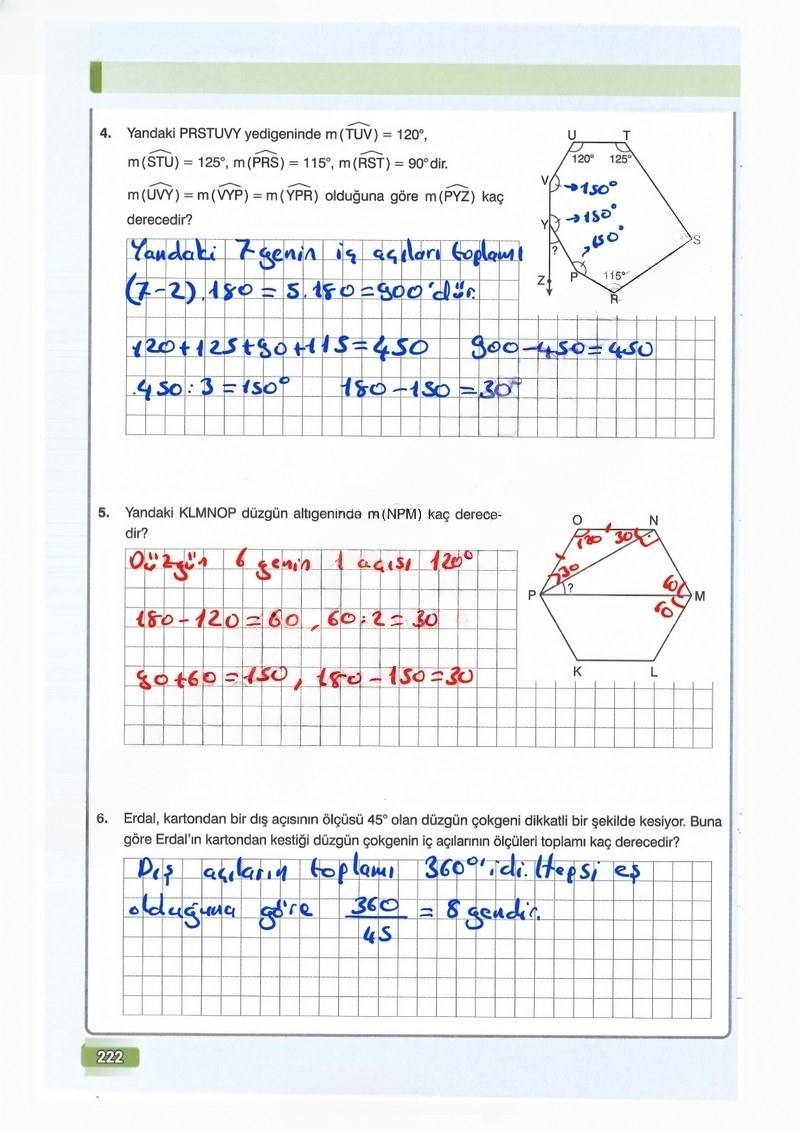 4. Yandaki PRSTUVY yedigeninde m(TUV) = 120°,
m(STU) = 125°, m(PRS) = 115°, m(RST) = 90° dir.
m(UVY) = m(VYP) = m(YPR) olduğuna göre m(PYZ) kaç
derecedir?
U T
120° 125°
V →150°
Y →150°
S
?
150°
Z P 115°
R
Yandaki 7 genin iç açıları toplamı
(7-2).180 = 5.180 = 900'dür.
120+125+90+115=450 900-450=450
450:3=150° 180-150=30°
5. Yandaki KLMNOP düzgün altıgeninde m(NPM) kaç derece-
dir?
O N
120 30
30
P ? 60 M
60
K L
Düzgün 6 genin 1 açısı 120°
180-120=60, 60:2=30
90+60=150, 180-150=30
6. Erdal, kartondan bir dış açısının ölçüsü 45° olan düzgün çokgeni dikkatli bir şekilde kesiyor. Buna
göre Erdal'ın kartondan kestiği düzgün çokgenin iç açılarının ölçüleri toplamı kaç derecedir?
Dış açıların toplamı 360°'idi. Hepsi eş
olduğuna göre 360/45 = 8 gendir.
222